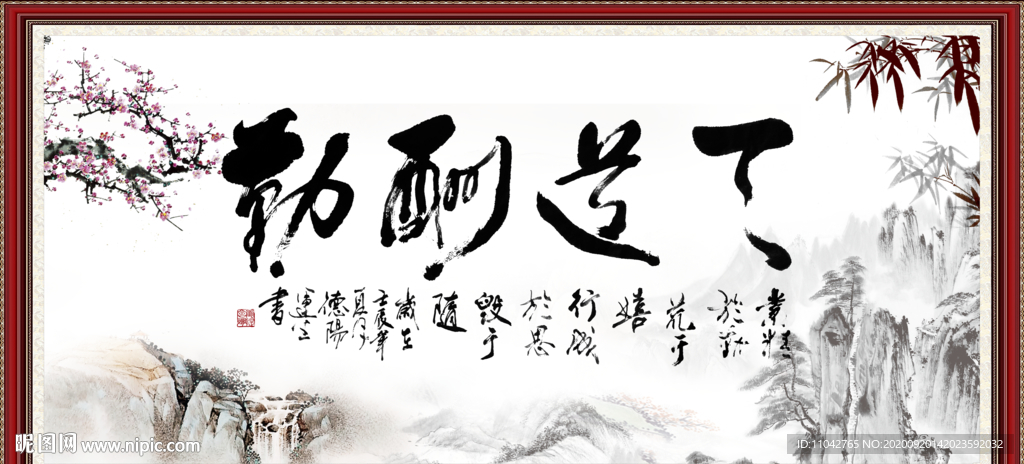 天道酬勤
業精於勤荒于嬉行成於思毁于隨
歲在壬辰年夏月德陽運公書
昵图网 www.nipic.com
ID:11042765 NO:20200920142023592032